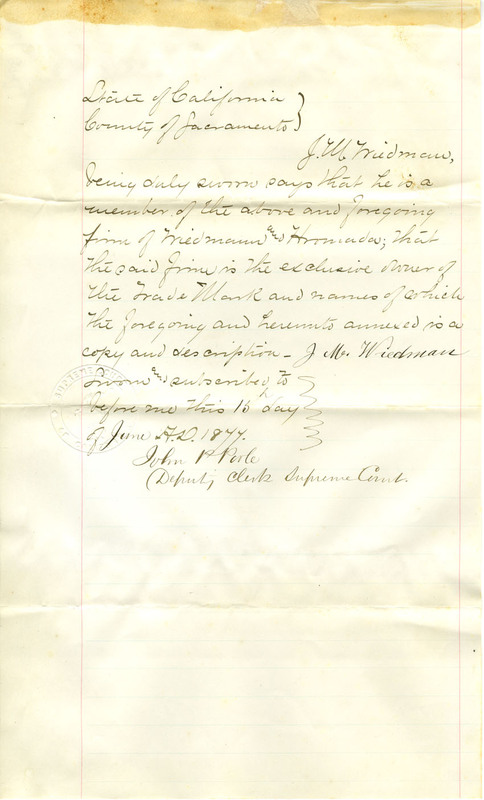 State of California }
County of Sacramento }
J. M. Wiedman,
being duly sworn says that he is a
member of the above and foregoing
firm of Wiedmann and Hromada; that
the said firm is the exclusive owner of
the Trade Mark and names of which
the foregoing and hereunto annexed is a
copy and description - J. M. Wiedman
Sworn and subscribed to
before me this 15 day
of June A.D. 1877.
John
Deputy Clerk Supreme Court.